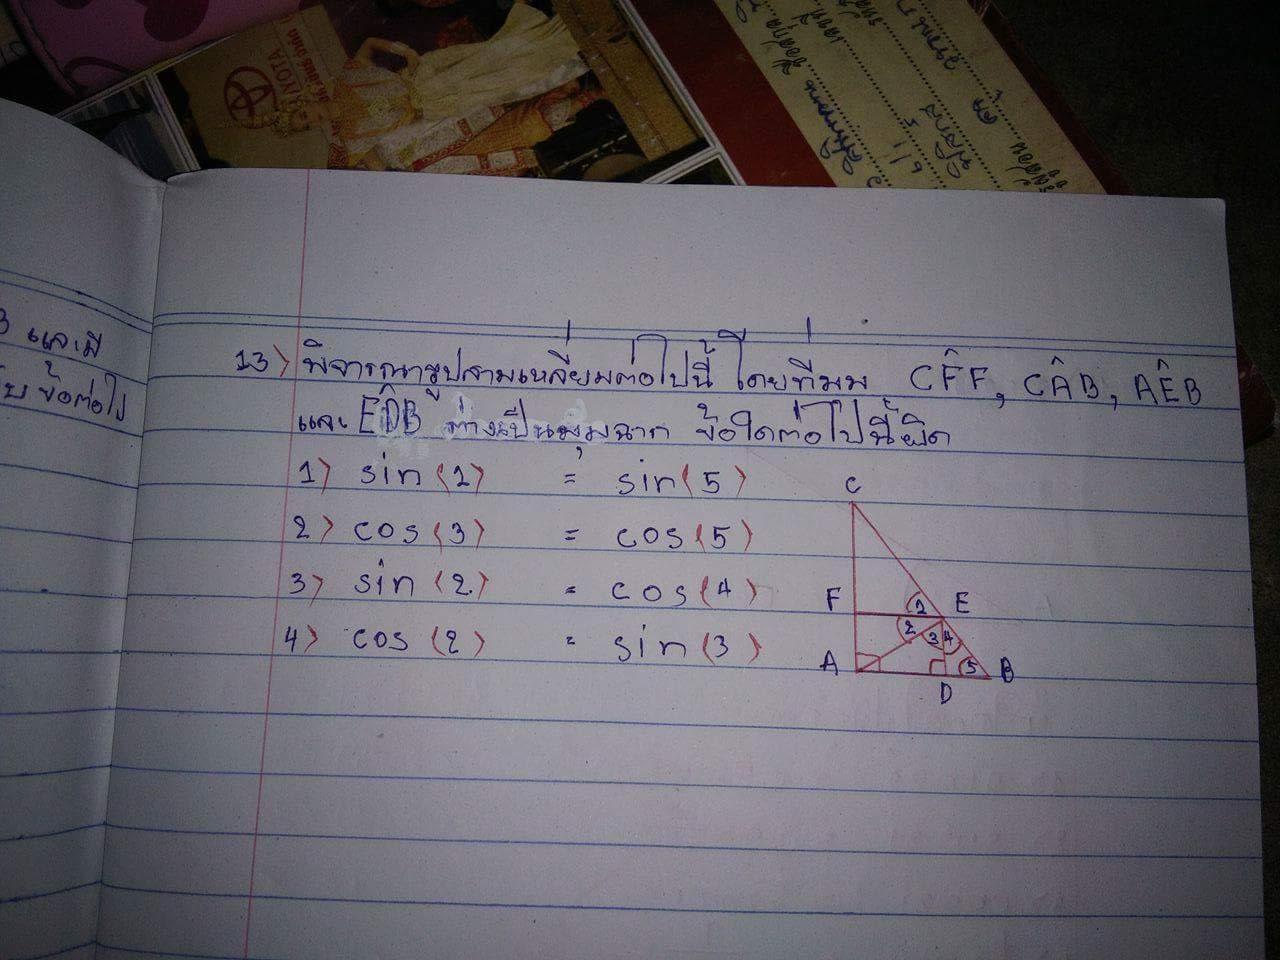 TOYOTA
B และมี
13) พิจารณารูปสามเหลี่ยมต่อไปนี้ โดยที่มุม CF̂F, CÂB, AÊB
และ ED̂B ต่างเป็นมุมฉาก ข้อใดต่อไปนี้ผิด
1) sin(2) = sin(5)
2) cos(3) = cos(5)
3) sin(2) = cos(4)
4) cos(2) = sin(3)
C
F
1
E
2
3
4
A
5
B
D